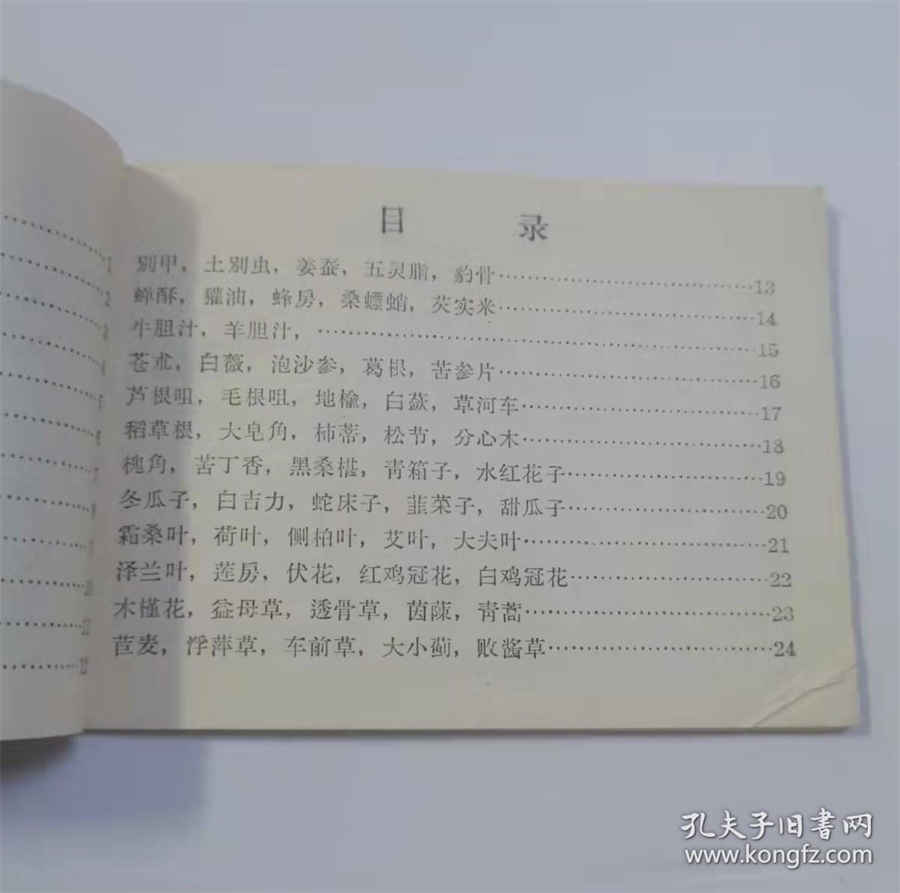 目 录
别甲，土别虫，姜蚕，五灵脂，豹骨……13
蝉酥，獾油，蜂房，桑螵蛸，芡实米……14
牛胆汁，羊胆汁，……15
苍朮，白薇，泡沙参，葛根，苦参片……16
芦根咀，毛根咀，地榆，白蔹，草河车……17
稻草根，大皂角，柿蒂，松节，分心木……18
槐角，苦丁香，黑桑椹，青箱子，水红花子……19
冬瓜子，白吉力，蛇床子，韮菜子，甜瓜子……20
霜桑叶，荷叶，侧柏叶，艾叶，大夫叶……21
泽兰叶，莲房，伏花，红鸡冠花，白鸡冠花……22
木槿花，益母草，透骨草，茵蔯，青蒿……23
苣麦，浮萍草，车前草，大小蓟，败酱草……24
孔夫子旧書网
www.kongfz.com